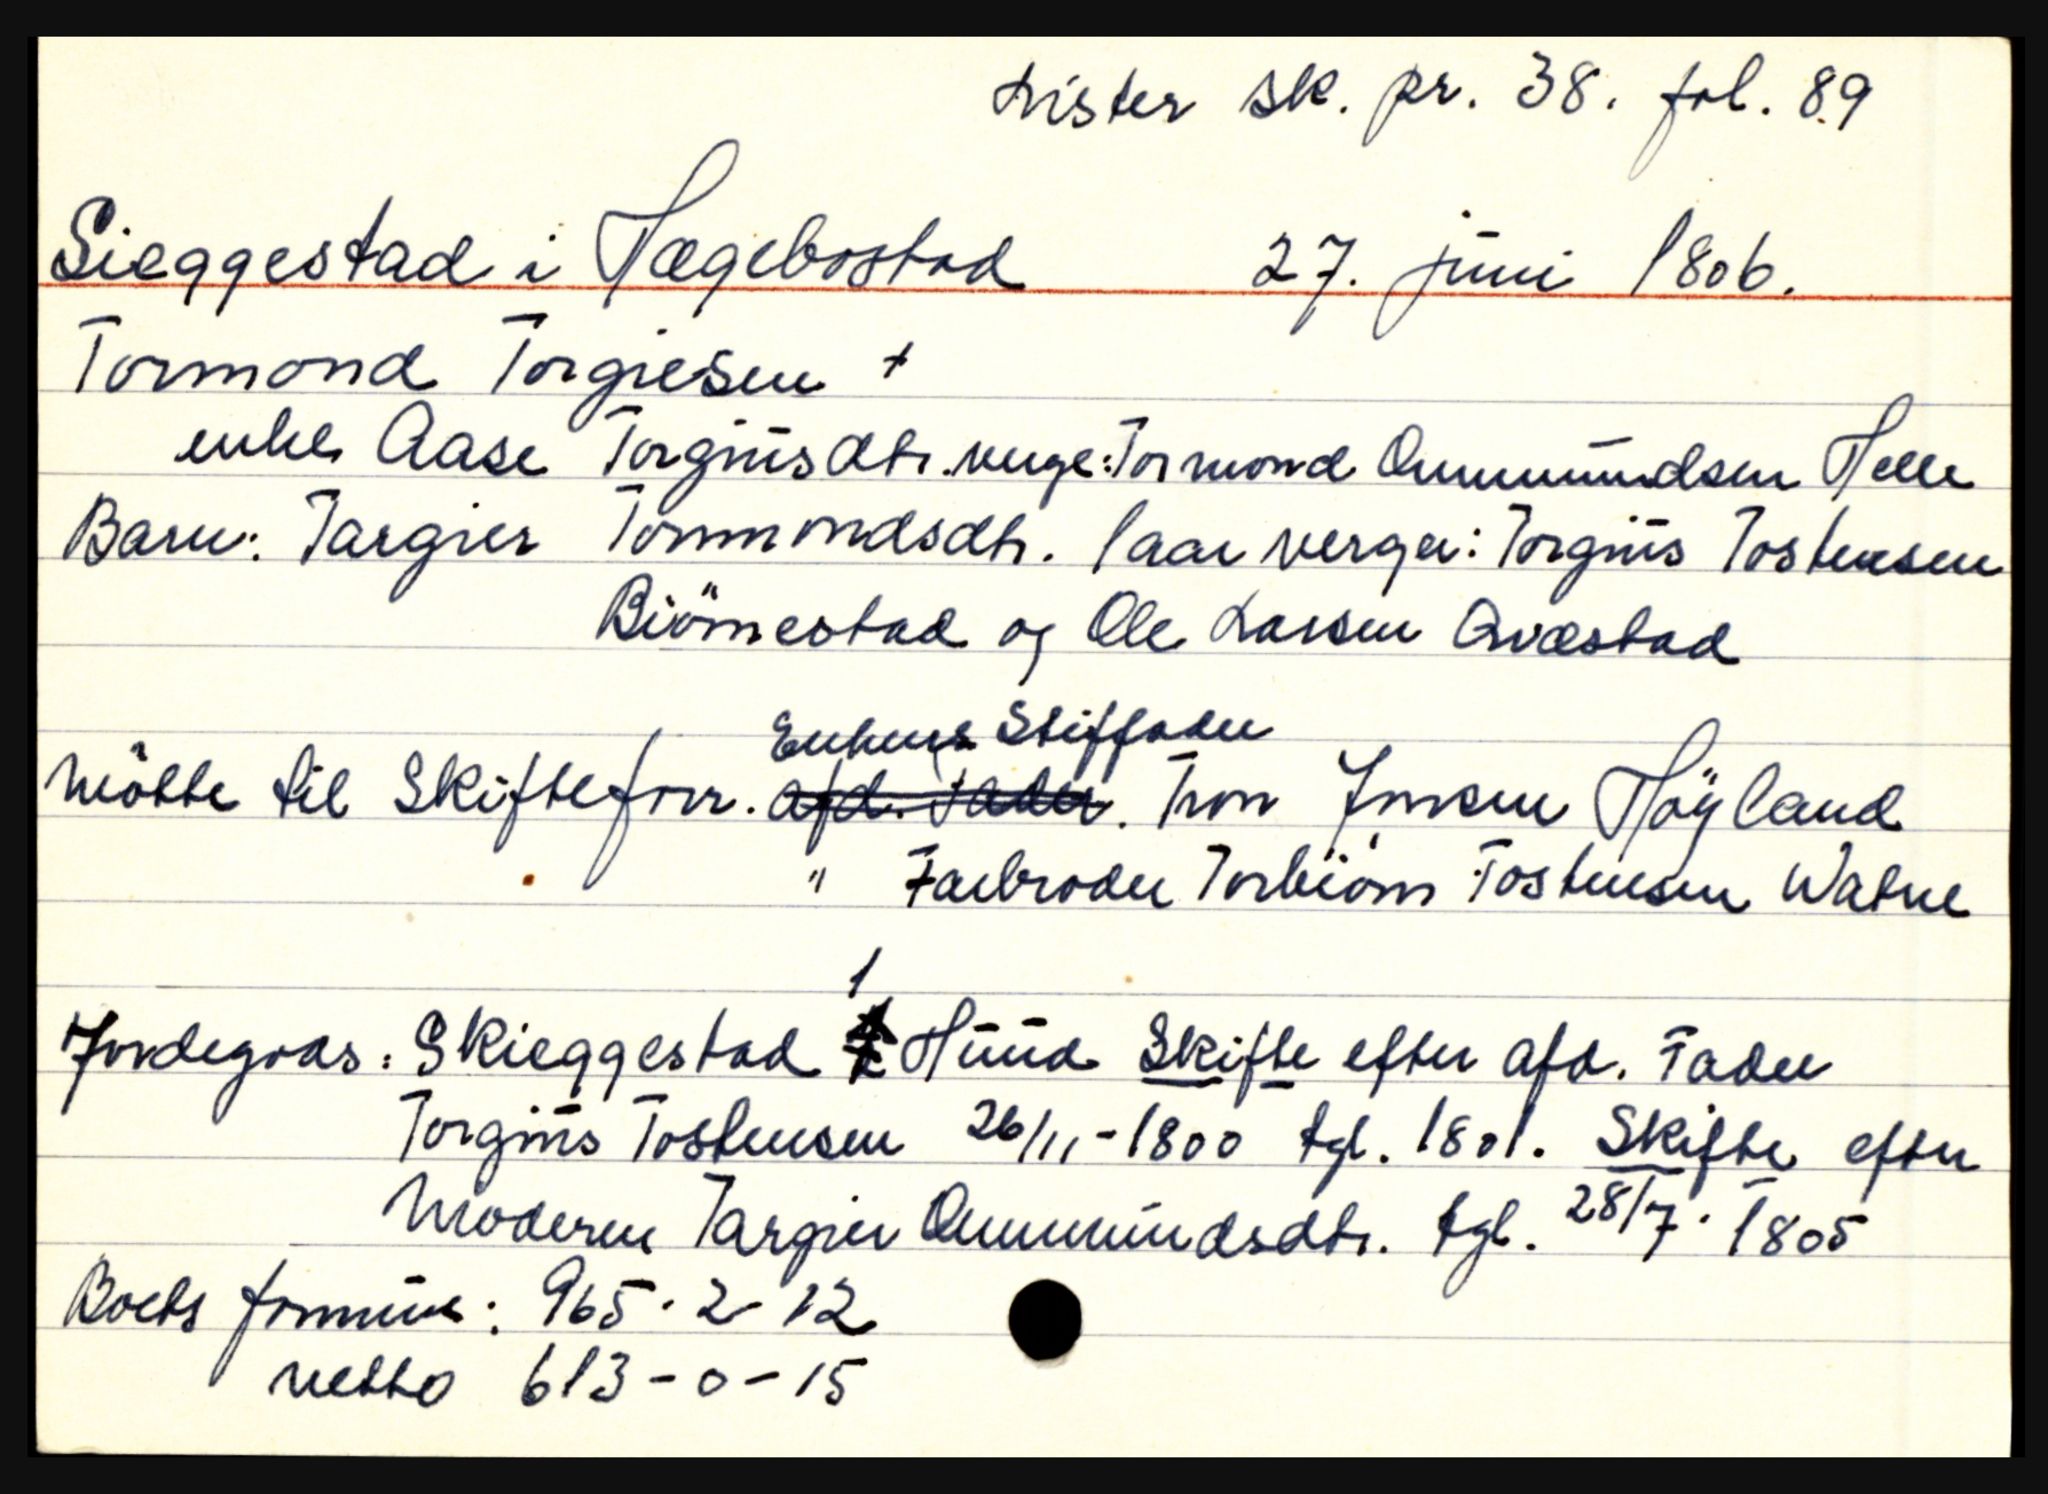 Lister sk. pr. 38. fol. 89
Sieggestad i Hægebostad 27. juni 1806.
Tormond Torgiesen +
enke Aase Torgiusdtr. verge: Tormond Ommundsen Helle
Barn: Targier Tormondsdtr. 1 aar verger: Torgius Tostensen
Biörnestad og Ole Larsen Qvæstad
Enkens Stiffader
Mötte til Skifteforr. afd. Fader. Tron Jonsen Höyland
" Farbroder Torbiörn Tostensen Watne
1
Jordegods: Skieggestad Huud Skifte efter afd. Fader
Torgius Tostensen 26/11-1800 tgl. 1801. Skifte efter
Moderen Targier Ommundsdtr. tgl. 28/7. 1805
Boets formue: 965-2-12
netto 613-0-15